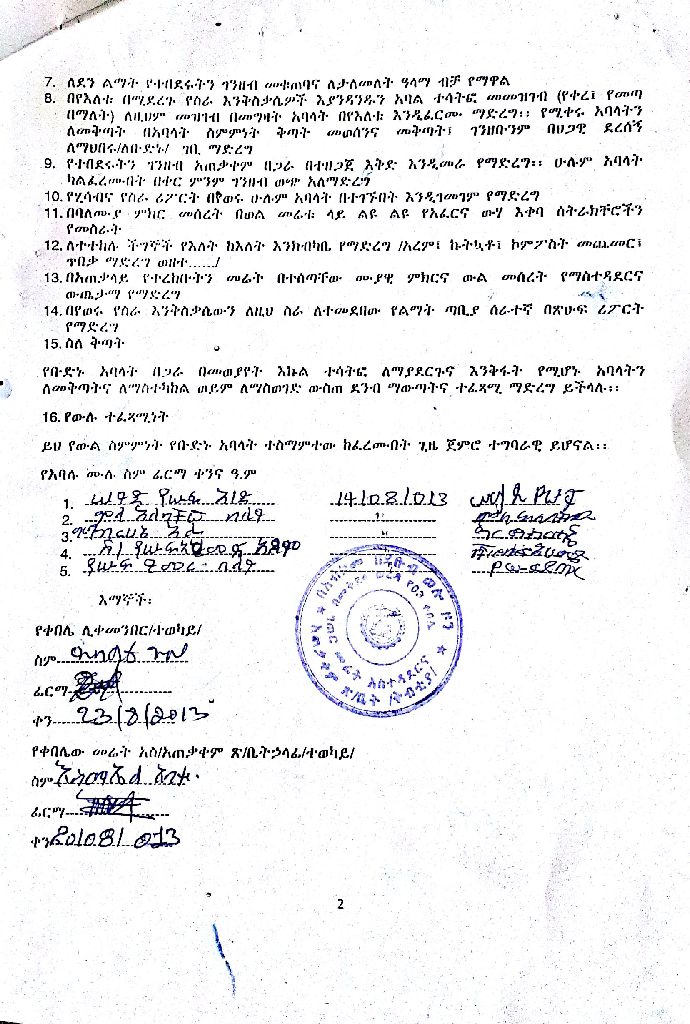 7. ለደን ልማት የተበደሩትን ገንዘብ መቁጠባና ለታለመለት ዓላማ ብቻ የማዋል
8. በየእለቱ በሚደረጉ የስራ እንቅስቃሴዎች እያንዳንዱን አባል ተሳትፎ መመዝገብ (የቀረ፤ የመጣ
በማለት) ለዚህም መዝገብ በመግዛት አባላት በየእለቱ እንዲፈርሙ ማድረግ፡፡ የሚቀሩ አባላትን
ለመቅጣት በአባላት ስምምነት ቅጣት መወሰንና መቅጣት፤ ገንዘቡንም በህጋዊ ደረሰኝ
ለማህበሩ/ለቡድኑ/ ገቢ ማድረግ
9. የተበደሩትን ገንዘብ አጠቃቀም በጋራ በተዘጋጀ እቅድ እንዲመራ የማድረግ፡፡ ሁሉም አባላት
ካልፈረሙበት በቀር ምንም ገንዘብ ወጭ አለማድረግ
10. የሂሳብና የስራ ሪፖርት በየወሩ ሁሉም አባላት በተገኙበት እንዲገመገም የማድረግ
11. በባለሙያ ምክር መሰረት በወል መሬቱ ላይ ልዩ ልዩ የአፈርና ውሃ እቀባ ስትራክቸሮችን
የመስራት
12. ለተተከሉ ችግኞች የእለት ከእለት እንክብካቤ የማድረግ /አረም፤ ኩትኳቶ፤ ኮምፖስት መጨመር፤
ጥበቃ ማድረግ ወዘተ....../
13. በአጠቃላይ የተረከቡትን መሬት በተሰጣቸው ሙያዊ ምክርና ውል መሰረት የማስተዳደርና
ውጤታማ የማድረግ
14. በየወሩ የስራ እንቅስቃሴውን ለዚህ ስራ ለተመደበው የልማት ጣቢያ ሰራተኛ በጽሁፍ ሪፖርት
የማድረግ
15. ስለ ቅጣት
የቡድኑ አባላት በጋራ በመወያየት እኩል ተሳትፎ ለማያደርጉና እንቅፋት የሚሆኑ አባላትን
ለመቅጣትና ለማስተካከል ወይም ለማስወገድ ውስጠ ደንብ ማውጣትና ተፈጻሚ ማድረግ ይችላሉ፡፡
16. የውሉ ተፈጻሚነት
ይህ የውል ስምምነት የቡድኑ አባላት ተስማምተው ከፈረሙበት ጊዜ ጀምሮ ተግባራዊ ይሆናል፡፡
የአባሉ ሙሉ ስም ፊርማ ቀንና ዓ.ም
1. የሱፍ 14/08/013
2.
3.
4.
5. የሱፍ
እማኞች፡
የቀበሌ ሊቀመንበር/ተወካይ/
ስም
ፊርማ
ቀን 23/8/2013
የቀበሌው መሬት አስ/አጠቃቀም ጽ/ቤት ኃላፊ/ተወካይ/
ስም
ፊርማ
ቀን 20/08/013
2